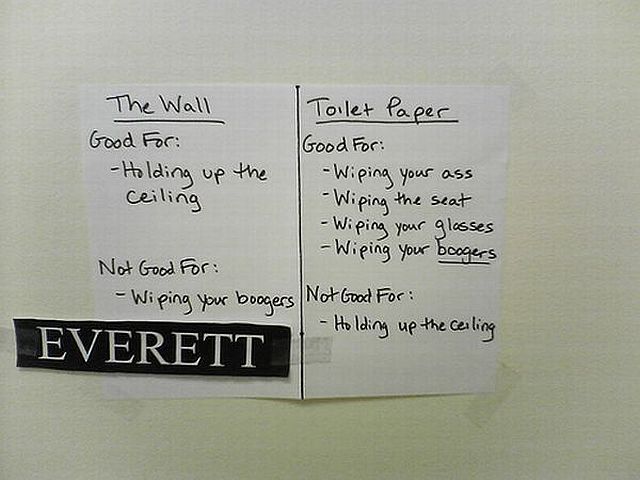 The Wall
Good For:
- Holding up the
ceiling
Not Good For:
- Wiping your boogers
EVERETT
Toilet Paper
Good For:
- Wiping your ass
- Wiping the seat
- Wiping your glasses
- Wiping your boogers
Not Good For:
- Holding up the ceiling